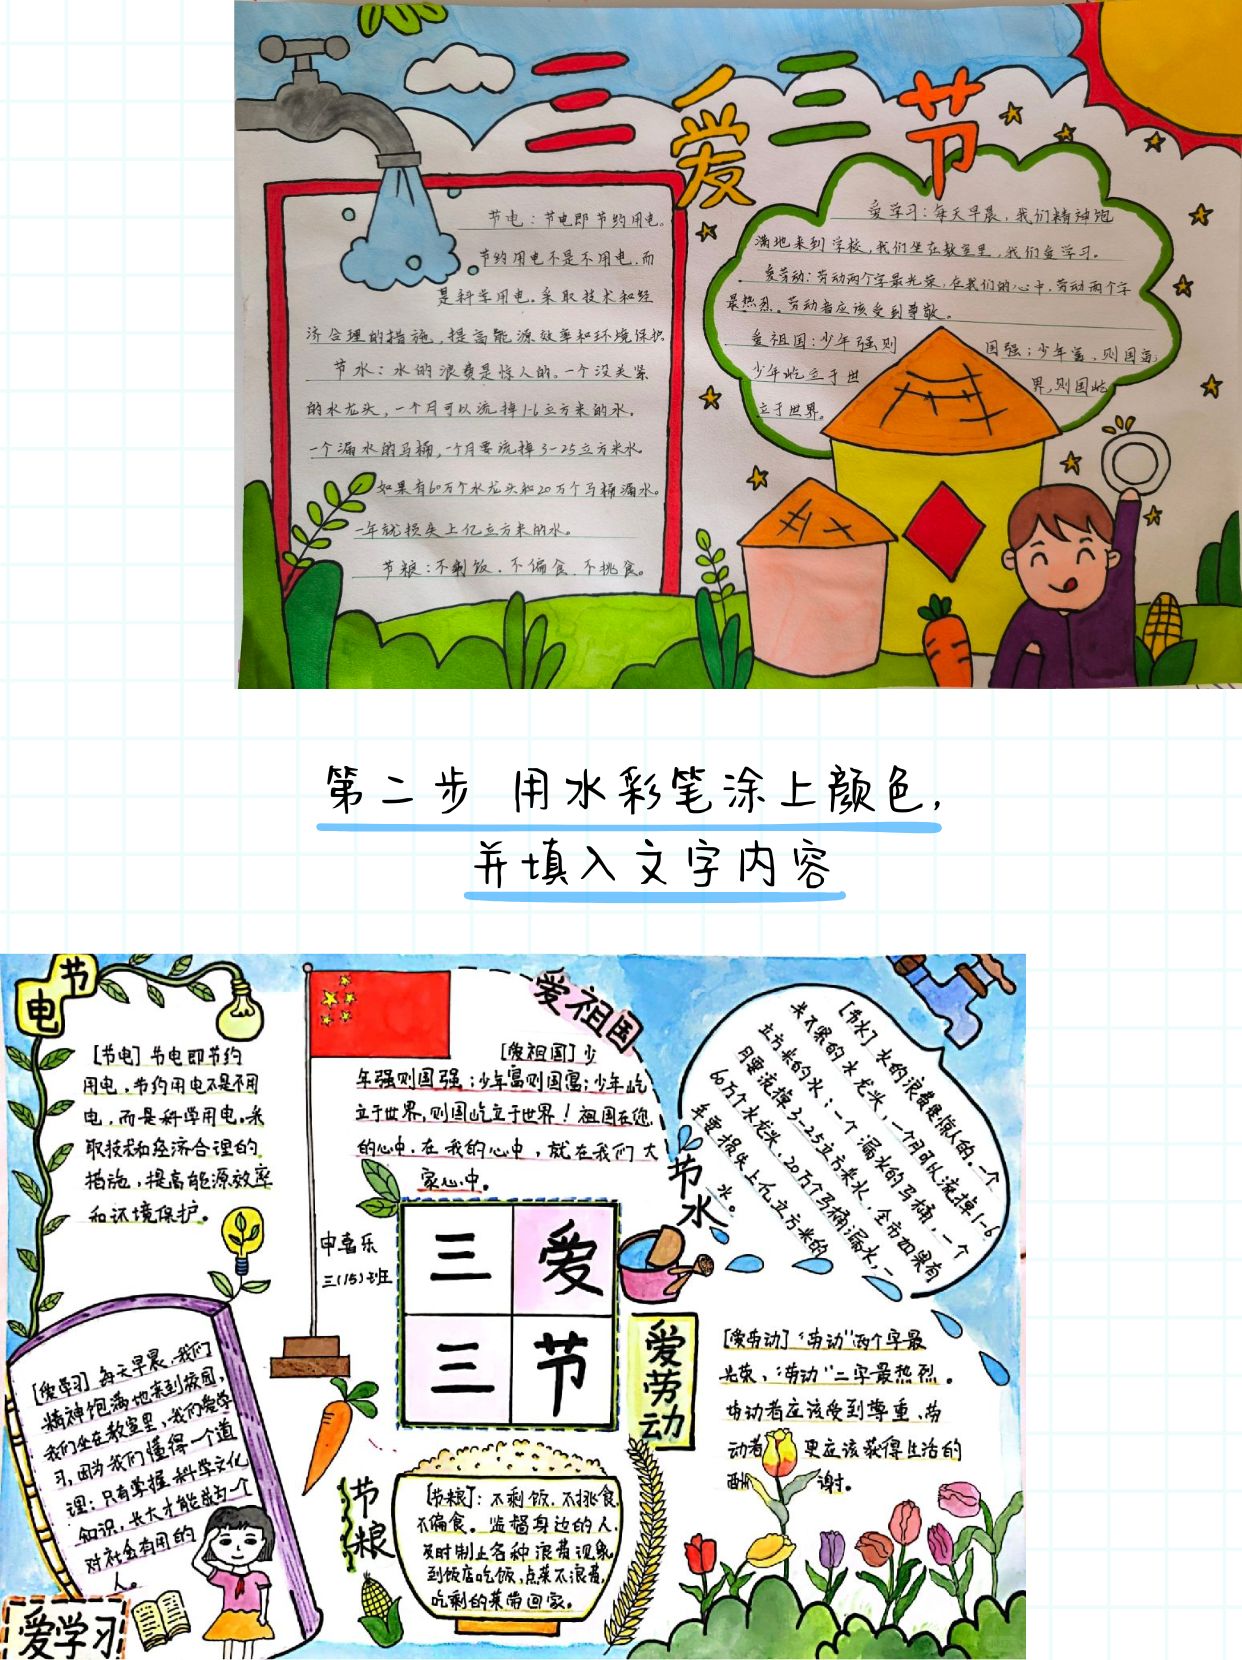 三爱三节
节电：节电即节约用电。
节约用电不是不用电，而
是科学用电。采取技术和经
济合理的措施，提高能源效率和环境保护
节水：水的浪费是惊人的。一个没关紧
的水龙头，一个月可以流掉1-6立方米的水。
一个漏水的马桶，一个月要流掉3-25立方米水
如果有60万个水龙头和20万个马桶漏水。
一年就损失上亿立方米的水。
节粮：不剩饭、不偏食、不挑食。
爱学习：每天早晨，我们精神饱
满地来到学校，我们坐在教室里，我们爱学习。
爱劳动：劳动两个字最光荣，在我们的心中，劳动两个字
最热烈。劳动者应该受到尊敬。
爱祖国：少年强则 国强；少年富，则国富；
少年屹立于世 界，则国屹
立于世界。
第二步 用水彩笔涂上颜色，
并填入文字内容
节电
[节电] 节电即节约
用电，节约用电不是不用
电，而是科学用电。采
取技术和经济合理的
措施，提高能源效率
和环境保护。
爱祖国
[爱祖国] 少
年强则国强；少年富则国富；少年屹
立于世界，则国屹立于世界！祖国在您
的心中，在我的心中，就在我们大
家心中。
节水
[节水] 水的浪费是惊人的。一个
关不紧的水龙头，一个月可以流掉1-6
立方米的水；一个漏水的马桶，一个
月要流掉3-25立方米水，全市如果有
60万个水龙头、20万个马桶漏水，一
年要损失上亿立方米的
水。
申喜乐
三(15)班
三爱
三节
爱劳动
[爱劳动] “劳动”两个字最
光荣，“劳动”二字最热烈。
劳动者应该受到尊重，劳
动者 更应该获得生活的
酬 谢。
[爱学习] 每天早晨，我们
精神饱满地来到校园，
我们坐在教室里，我们爱学
习，因为我们懂得一个道
理：只有掌握科学文化
知识，长大才能做到一个
对社会有用的
人。
爱学习
节粮
[节粮]：不剩饭，不挑食，
不偏食。监督身边的人，
及时制止各种浪费现象，
到饭店吃饭，点菜不浪费，
吃剩的菜带回家。